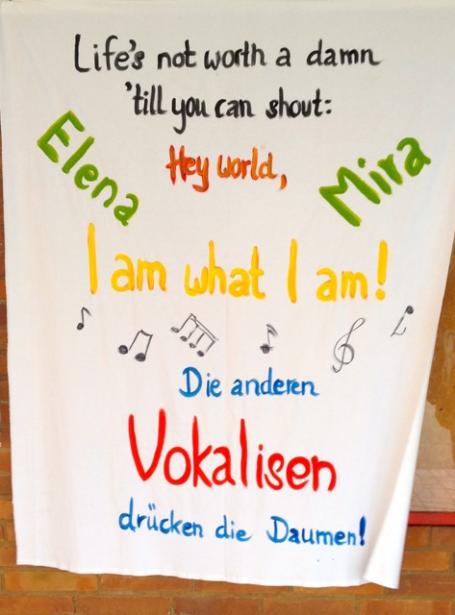 Life's not worth a damn
'till you can shout:
Elena
Hey world,
Mira
I am what I am!
Die anderen
Vokalisen
drücken die Daumen!